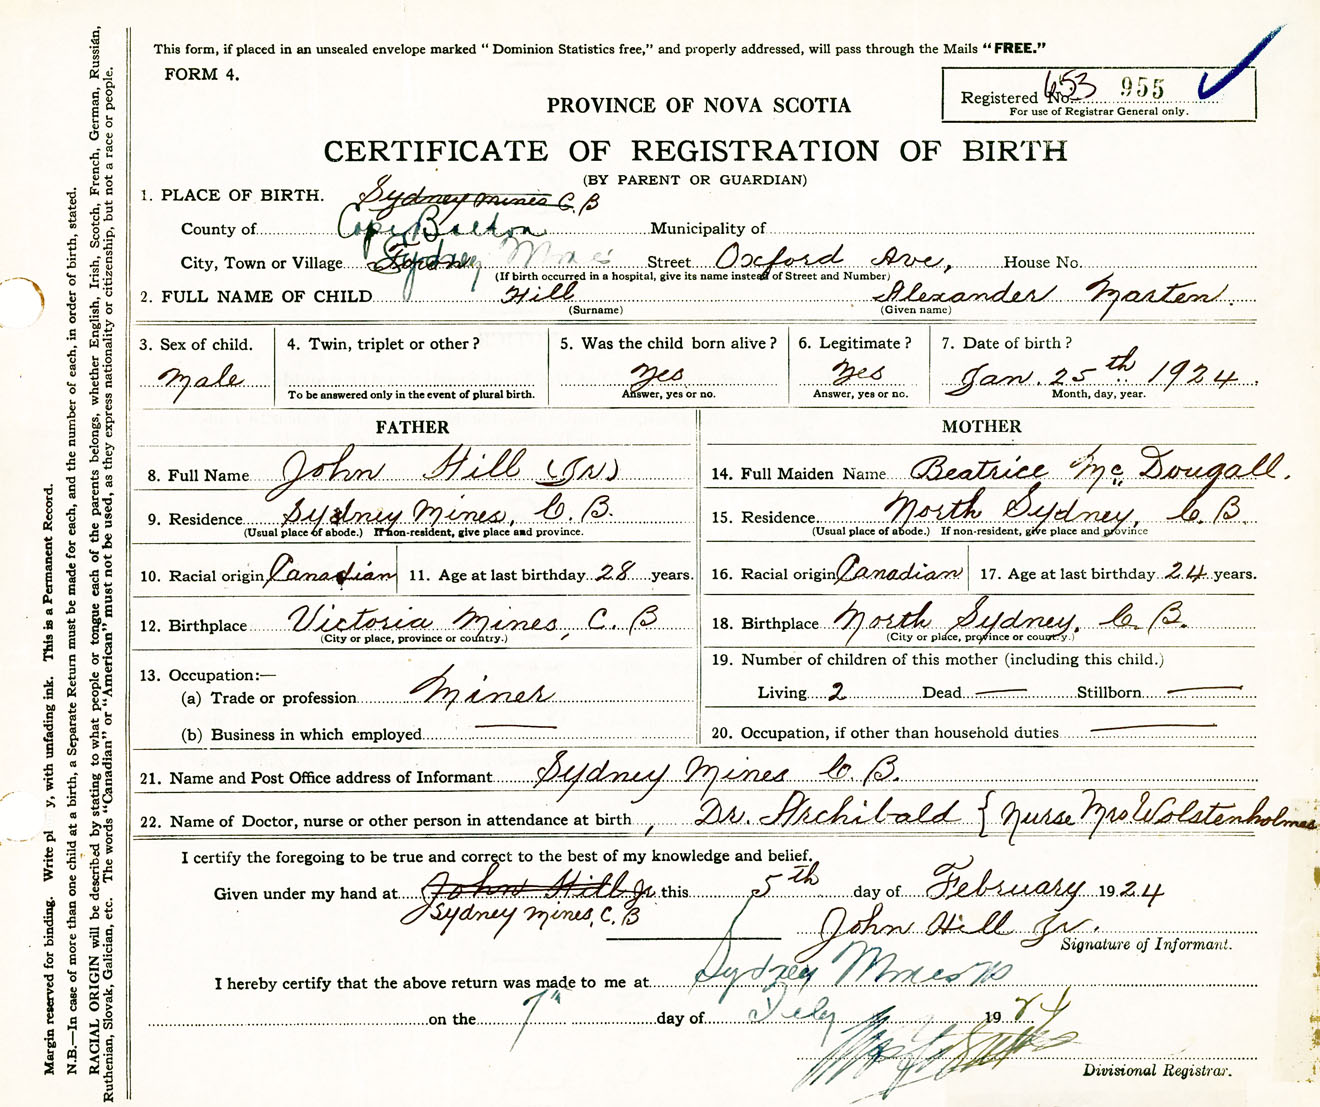 This form, if placed in an unsealed envelope marked “ Dominion Statistics free,” and properly addressed, will pass through the Mails “FREE.”
FORM 4.
Registered No. 653 955
For use of Registrar General only.
PROVINCE OF NOVA SCOTIA
CERTIFICATE OF REGISTRATION OF BIRTH
(BY PARENT OR GUARDIAN)
1. PLACE OF BIRTH. Sydney Mines C. B
County of Cape Breton Municipality of
City, Town or Village Sydney Mines Street Oxford Ave, House No.
(If birth occurred in a hospital, give its name instead of Street and Number)
2. FULL NAME OF CHILD Hill Alexander Marten.
(Surname) (Given name)
3. Sex of child. 4. Twin, triplet or other ? 5. Was the child born alive ? 6. Legitimate ? 7. Date of birth ?
Male Yes Yes Jan. 25th 1924.
To be answered only in the event of plural birth. Answer, yes or no. Answer, yes or no. Month, day, year.
FATHER
8. Full Name John Hill (Jr)
9. Residence Sydney Mines, C. B.
(Usual place of abode.) If non-resident, give place and province.
10. Racial origin Canadian 11. Age at last birthday 28 years.
12. Birthplace Victoria Mines, C. B
(City or place, province or country.)
13. Occupation:—
(a) Trade or profession Miner
(b) Business in which employed —
MOTHER
14. Full Maiden Name Beatrice Mc Dougall.
15. Residence North Sydney, C. B.
(Usual place of abode.) If non-resident, give place and province
16. Racial origin Canadian 17. Age at last birthday 24 years.
18. Birthplace North Sydney, C. B.
(City or place, province or country.)
19. Number of children of this mother (including this child.)
Living 2 Dead — Stillborn —
20. Occupation, if other than household duties —
21. Name and Post Office address of Informant Sydney Mines C. B.
22. Name of Doctor, nurse or other person in attendance at birth , Dr. Archibald { Nurse Mrs Wolstenholmes
I certify the foregoing to be true and correct to the best of my knowledge and belief.
Given under my hand at John Hill Jr this 5th day of February 1924
Sydney Mines, C. B
John Hill Jr.
Signature of Informant.
I hereby certify that the above return was made to me at Sydney Mines
on the 7th day of Feby 1924
Divisional Registrar.
Margin reserved for binding. Write pl y, with unfading ink. This is a Permanent Record.
N.B.—In case of more than one child at a birth, a Separate Return must be made for each, and the number of each, in order of birth, stated.
RACIAL ORIGIN will be described by stating to what people or tongue each of the parents belongs, whether English, Irish, Scotch, French, German, Russian,
Ruthenian, Slovak, Galician, etc. The words “Canadian” or “American” must not be used, as they express nationality or citizenship, but not a race or people.